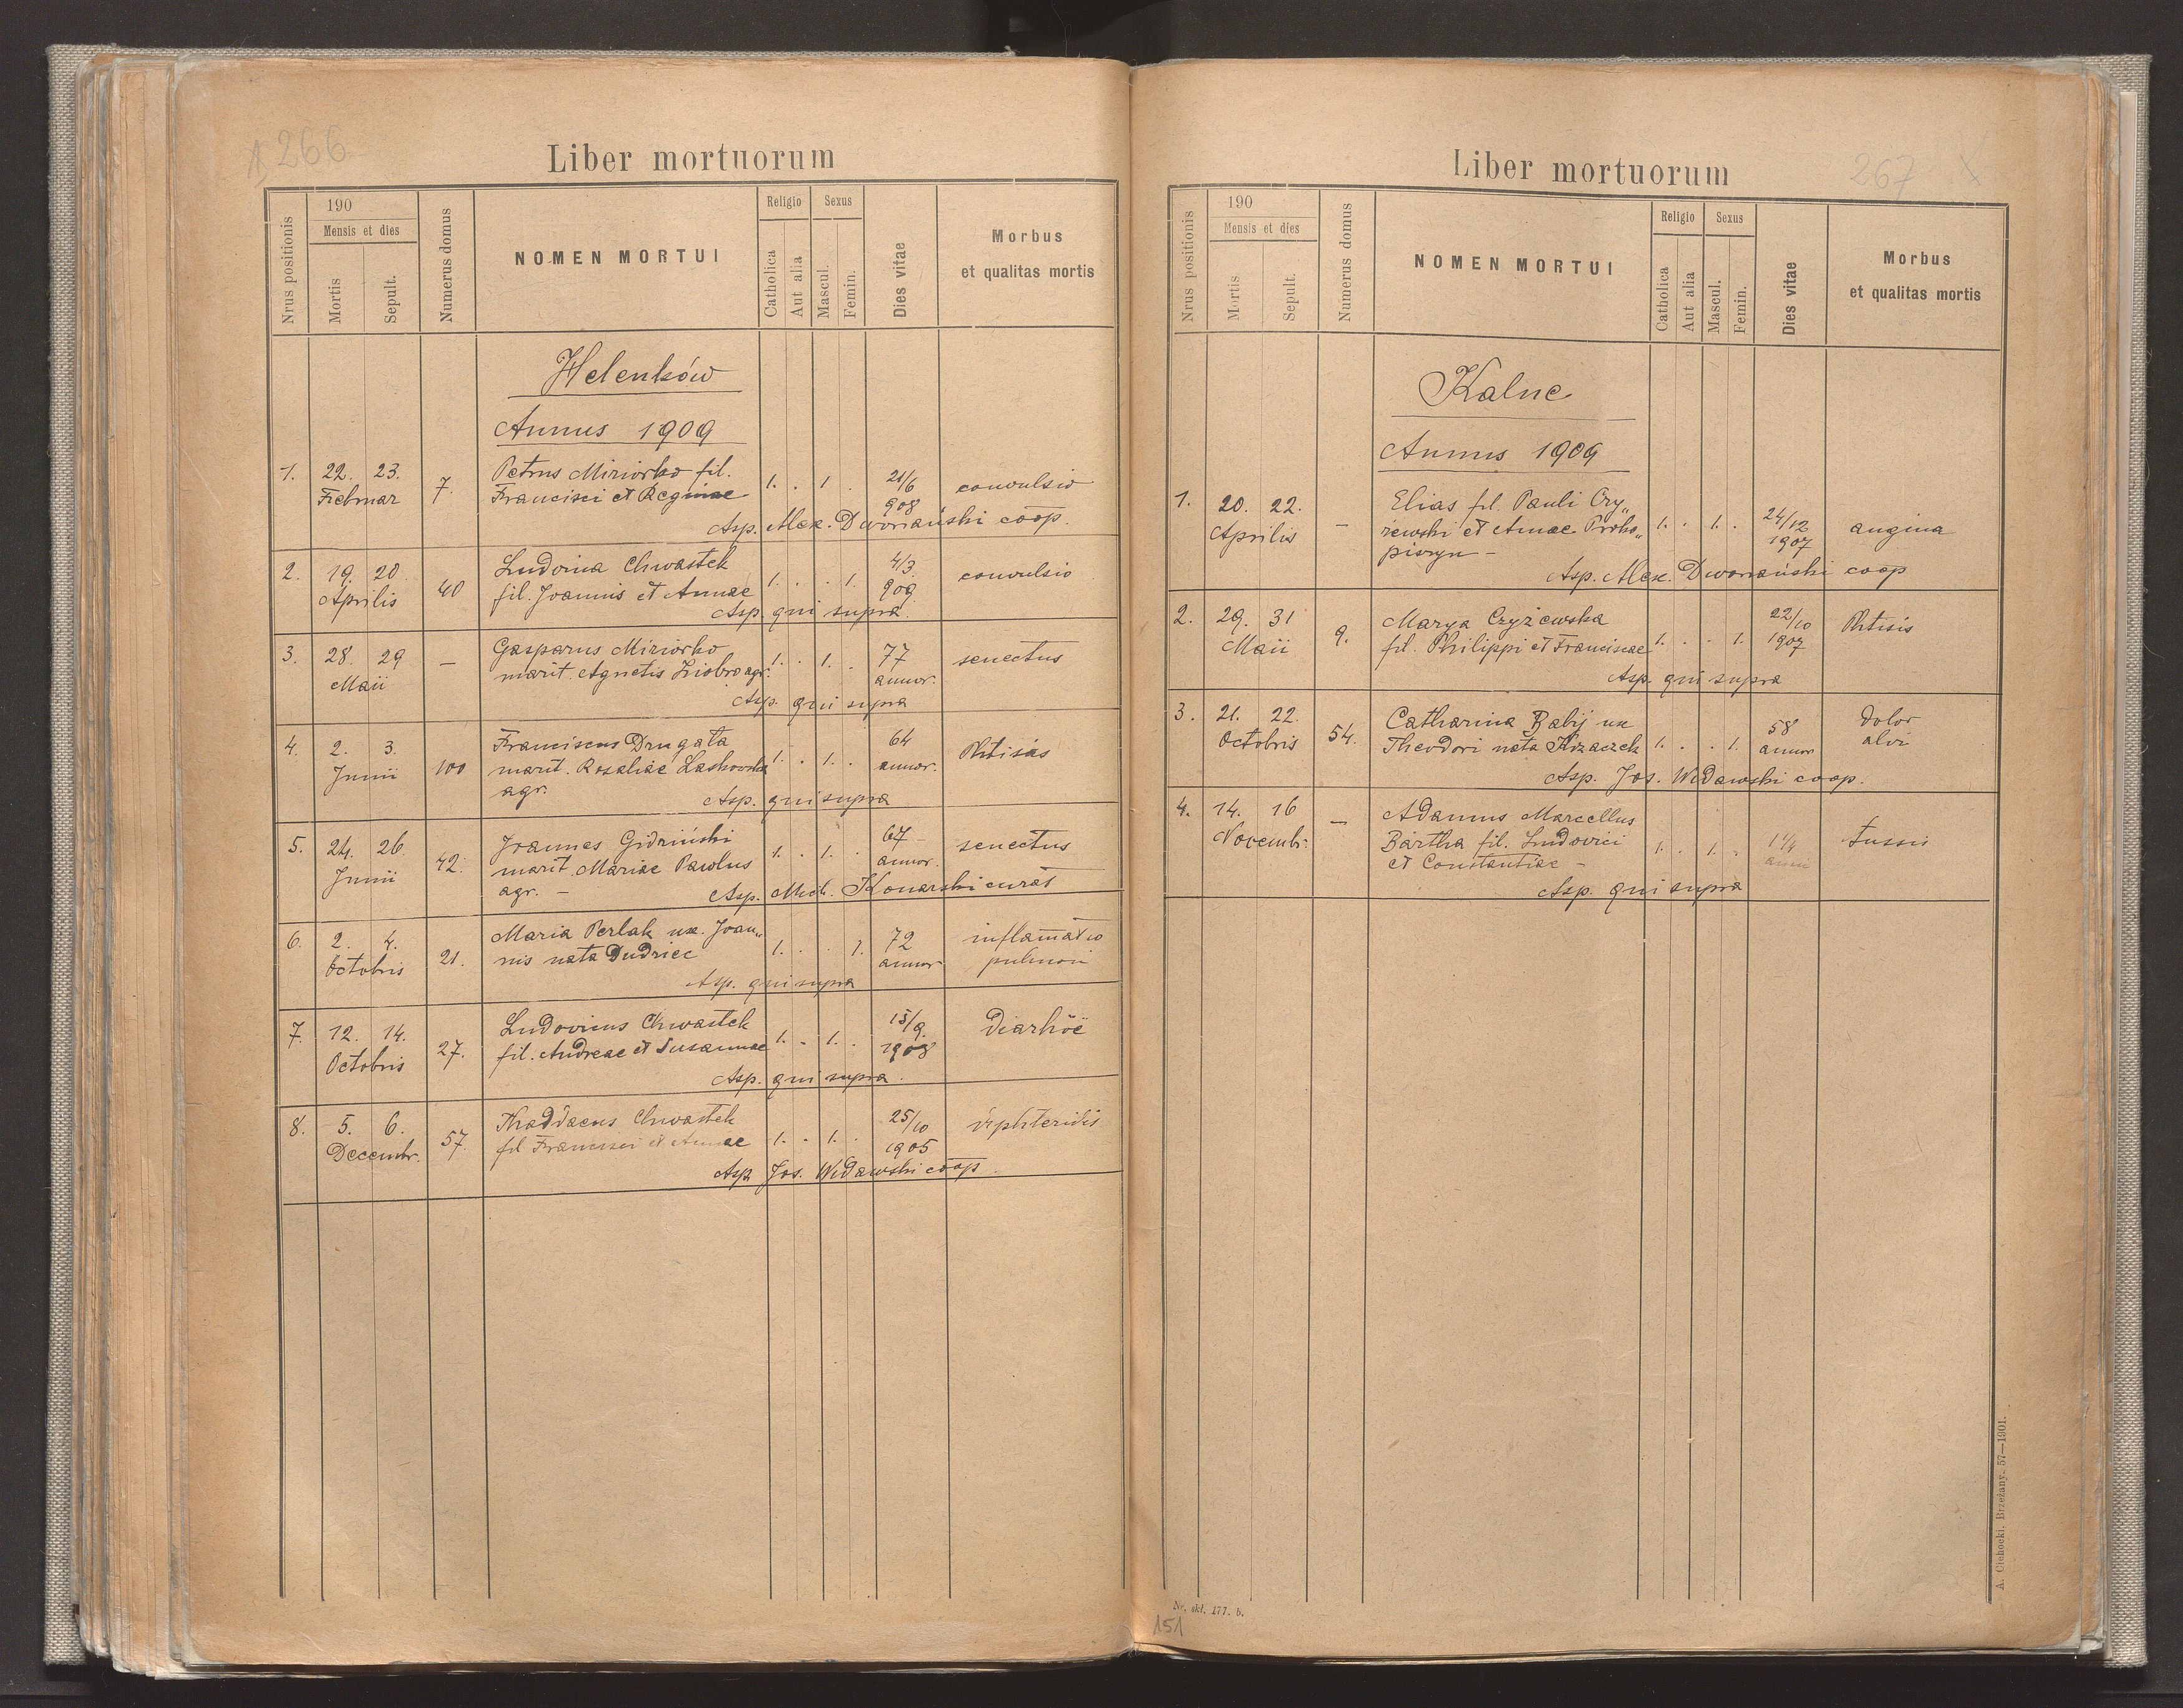 266
Liber mortuorum
Nrus positionis
190
Mensis et dies
Mortis
Sepult.
Numerus domus
NOMEN MORTUI
Religio
Catholica
Aut alia
Sexus
Mascul.
Femin.
Dies vitae
Morbus
et qualitas mortis
Helenków
Annus 1909
1. 22. 23. Februar 7. Petrus Miziorko fil. 1. . 1 . 21/6 908 convulsio
Francisci et Reginae
Asp. Alex. Dworzański coop.
2. 19. 20. Aprilis 40 Ludovica Chwastek 1. . . 1. 4/3 909 convulsio
fil. Joannis et Annae
Asp. qui supra.
3. 28. 29 Maii — Gasparus Miziorko 1. . 1. . 77 annor. senectus
marit. Agnetis Ziobro agr.
Asp. qui supra
4. 2. 3. Junii 100 Franciscus Drugata 1. . 1. . 64 annor. Phtisis
marit. Rosaliae Laskowska
agr.
Asp. qui supra
5. 24. 26. Junii 42. Joannes Gidziński 1. . 1. . 67 annor. senectus
marit. Mariae Pawlus
agr. —
Asp. Mich. Konarski curat
6. 2. 4. Octobris 21. Maria Perlak ux. Joan„ 1. . . 1. 72 annor inflamatio
nis nata Dudziec pulmon
Asp. qui supra
7. 12. 14. Octobris 27. Ludovicus Chwastek 1. . 1. . 15/9. 1908 Diarhöe
fil. Andreae et Susannae
Asp. qui supra.
8. 5. 6. Decembr. 57. Thaddaeus Chwastek 1. . 1. . 25/10 1905 diphteridis
fil Francisci et Annae
Asp Jos. Widawski coop.
267
Liber mortuorum
Nrus positionis
190
Mensis et dies
Mortis
Sepult.
Numerus domus
NOMEN MORTUI
Religio
Catholica
Aut alia
Sexus
Mascul.
Femin.
Dies vitae
Morbus
et qualitas mortis
Kalne
Annus 1909
1. 20. 22. Aprilis — Elias fil. Pauli Czy„ 1. . 1. . 24/12 1907 angina
żewski et Annae Proko„
piszyn —
Asp. Alex. Dworzański coop
2. 29. 31 Maii 9. Marya Czyżewska 1. . . 1. 22/10 1907 Phtisis
fil. Philippi et Franciscae
Asp. qui supra
3. 21. 22. Octobris 54. Catharina Babij ux 1. . . 1. 58 annor dolor
Theodori nata Krzaczek alvi
Asp. Jos. Widawski coop.
4. 14. 16 Novembr. — Adamus Marcellus 1. . 1. . 1 1/4 anni tussis
Bartha fil. Ludovici
et Constantiae —
Asp. qui supra
A. Cichocki. Brzeżany. 57—1901.
Nr. skł. 177. b.
151